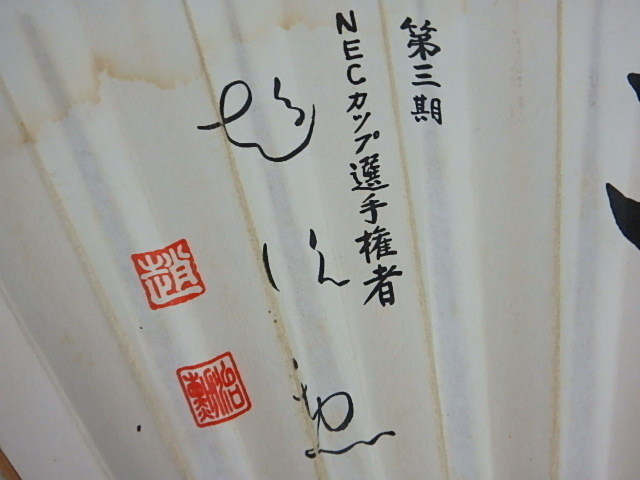 第三期
NECカップ選手権者
趙治勲
趙
治勲